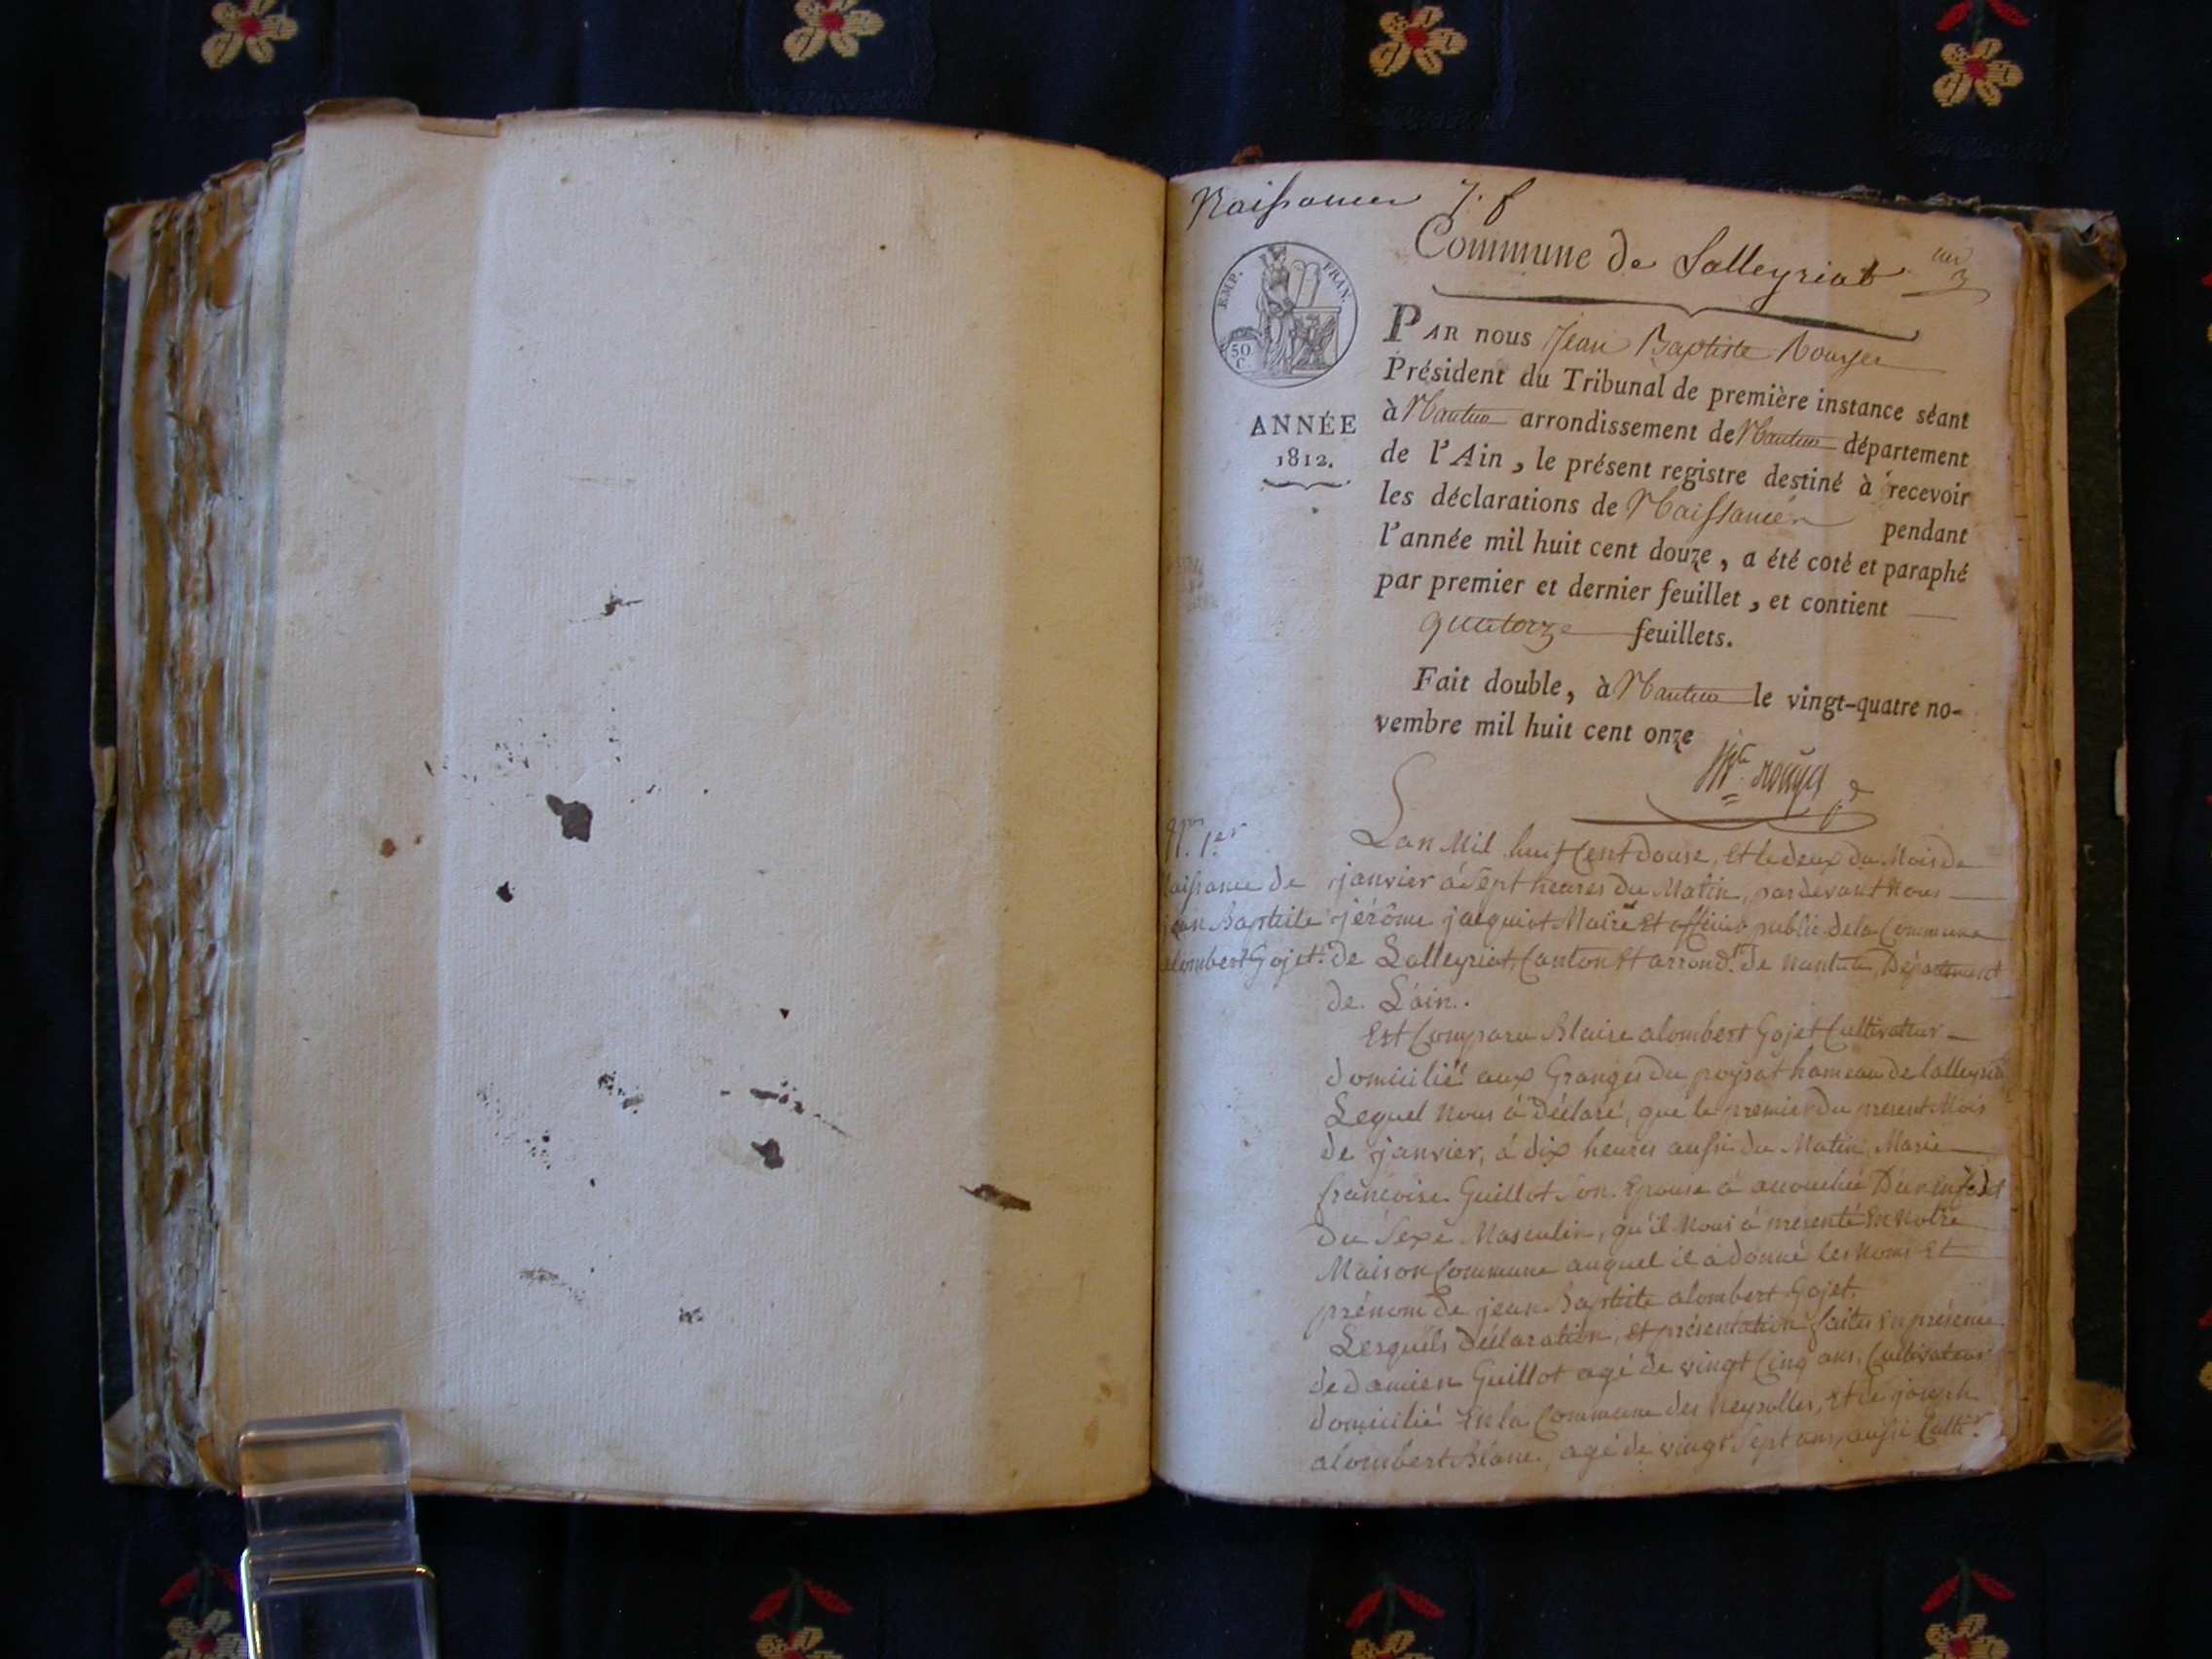 Naissances 7. f
Commune de Lalleyriat
EMP. FRAN.
50
C.
ANNÉE
1812.
PAR nous Jean Baptiste Rouyer
Président du Tribunal de première instance séant
à Nantua arrondissement de Nantua département
de l'Ain, le présent registre destiné à recevoir
les déclarations de Naissances pendant
l'année mil huit cent douze, a été coté et paraphé
par premier et dernier feuillet, et contient
quatorze feuillets.
Fait double, à Nantua le vingt-quatre no-
vembre mil huit cent onze
N. 1.er
Naissance de
jean Baptiste
alombert Gojet.
Lan Mil huit Cent douse, et le deux du Mois de
janvier à Sept heures du Matin, pardevant Nous
jérôme jacquiot Maire et officier public de la Commune
de Lalleyriat, Canton et arrond.t de nantua, Département
de L'ain.
Est Comparu Blaise alombert Gojet Cultivateur
domicilié aux Granges du poysat hameau de lalleyriat
Lequel Nous à Déclaré, que le premier du present Mois
de janvier, à dix heures aussi du Matin, Marie
francoise Guillot Son Epouse à accouchée D'un enfant
Du Sexe Masculin, qu'il Nous à présenté En Notre
Maison Commune auquel il a donné les Noms Et
prénom de jean Baptiste alombert Gojet.
Lesquels Déclaration, et présentation faites En présence
de damien Guillot agé de vingt Cinq ans, Cultivateur
domicilié En la Commune des Neyrolles, et de joseph
alombert Blanc, agé de vingt Sept ans, aussi Cultiv.r